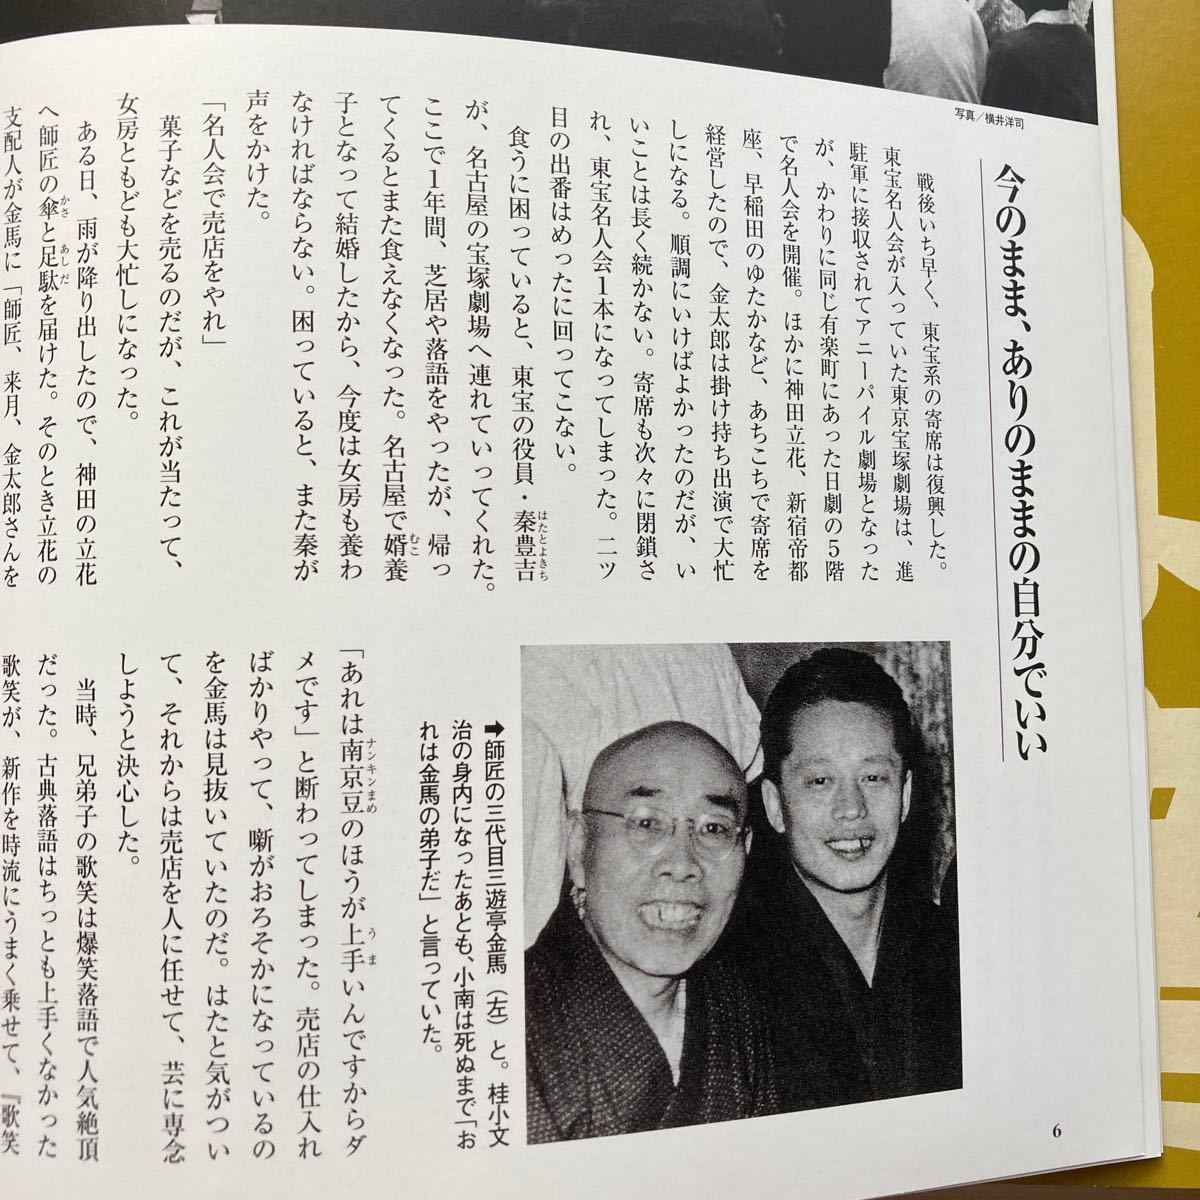 写真／横井洋司
今のまま、ありのままの自分でいい
戦後いち早く、東宝系の寄席は復興した。
東宝名人会が入っていた東京宝塚劇場は、進
駐軍に接収されてアニーパイル劇場となった
が、かわりに同じ有楽町にあった日劇の5階
で名人会を開催。ほかに神田立花、新宿帝都
座、早稲田のゆたかなど、あちこちで寄席を
経営したので、金太郎は掛け持ち出演で大忙
しになる。順調にいけばよかったのだが、い
いことは長く続かない。寄席も次々に閉鎖さ
れ、東宝名人会1本になってしまった。二ツ
目の出番はめったに回ってこない。
食うに困っていると、東宝の役員・秦豊吉
はたとよきち
が、名古屋の宝塚劇場へ連れていってくれた。
ここで1年間、芝居や落語をやったが、帰っ
てくるとまた食えなくなった。名古屋で婿養
むこ
子となって結婚したから、今度は女房も養わ
なければならない。困っていると、また秦が
声をかけた。
「名人会で売店をやれ」
菓子などを売るのだが、これが当たって、
女房ともども大忙しになった。
ある日、雨が降り出したので、神田の立花
へ師匠の傘と足駄を届けた。そのとき立花の
かさ
あしだ
支配人が金馬に「師匠、来月、金太郎さんを
➡師匠の三代目三遊亭金馬（左）と。桂小文
治の身内になったあとも、小南は死ぬまで「お
れは金馬の弟子だ」と言っていた。
「あれは南京豆のほうが上手いんですからダ
ナンキンまめ
うま
メです」と断わってしまった。売店の仕入れ
ばかりやって、噺がおろそかになっているの
を金馬は見抜いていたのだ。はたと気がつい
て、それからは売店を人に任せて、芸に専念
しようと決心した。
当時、兄弟子の歌笑は爆笑落語で人気絶頂
だった。古典落語はちっとも上手くなかった
歌笑が、新作を時流にうまく乗せて、『歌笑
6